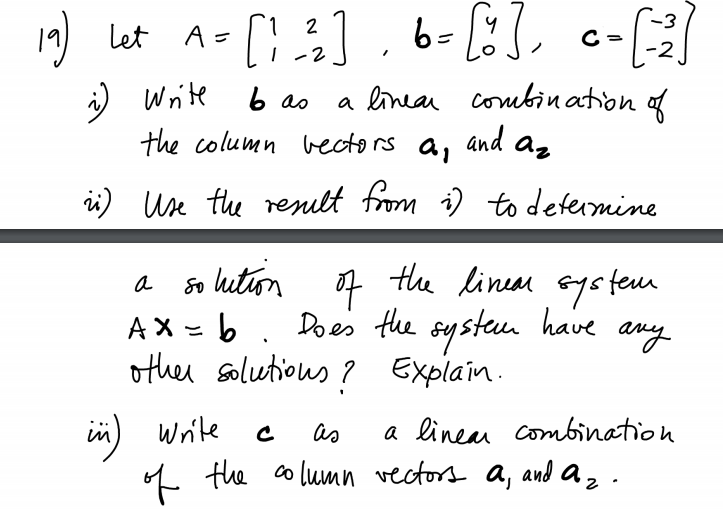 19) Let A = [1 2; 1 -2], b = [4; 0], c = [-3; -2]
i) Write b as a linear combination of
the column vectors a₁ and a₂
ii) Use the result from i) to determine
a solution of the linear system
Ax = b. Does the system have any
other solutions? Explain.
iii) Write c as a linear combination
of the column vectors a₁ and a₂.